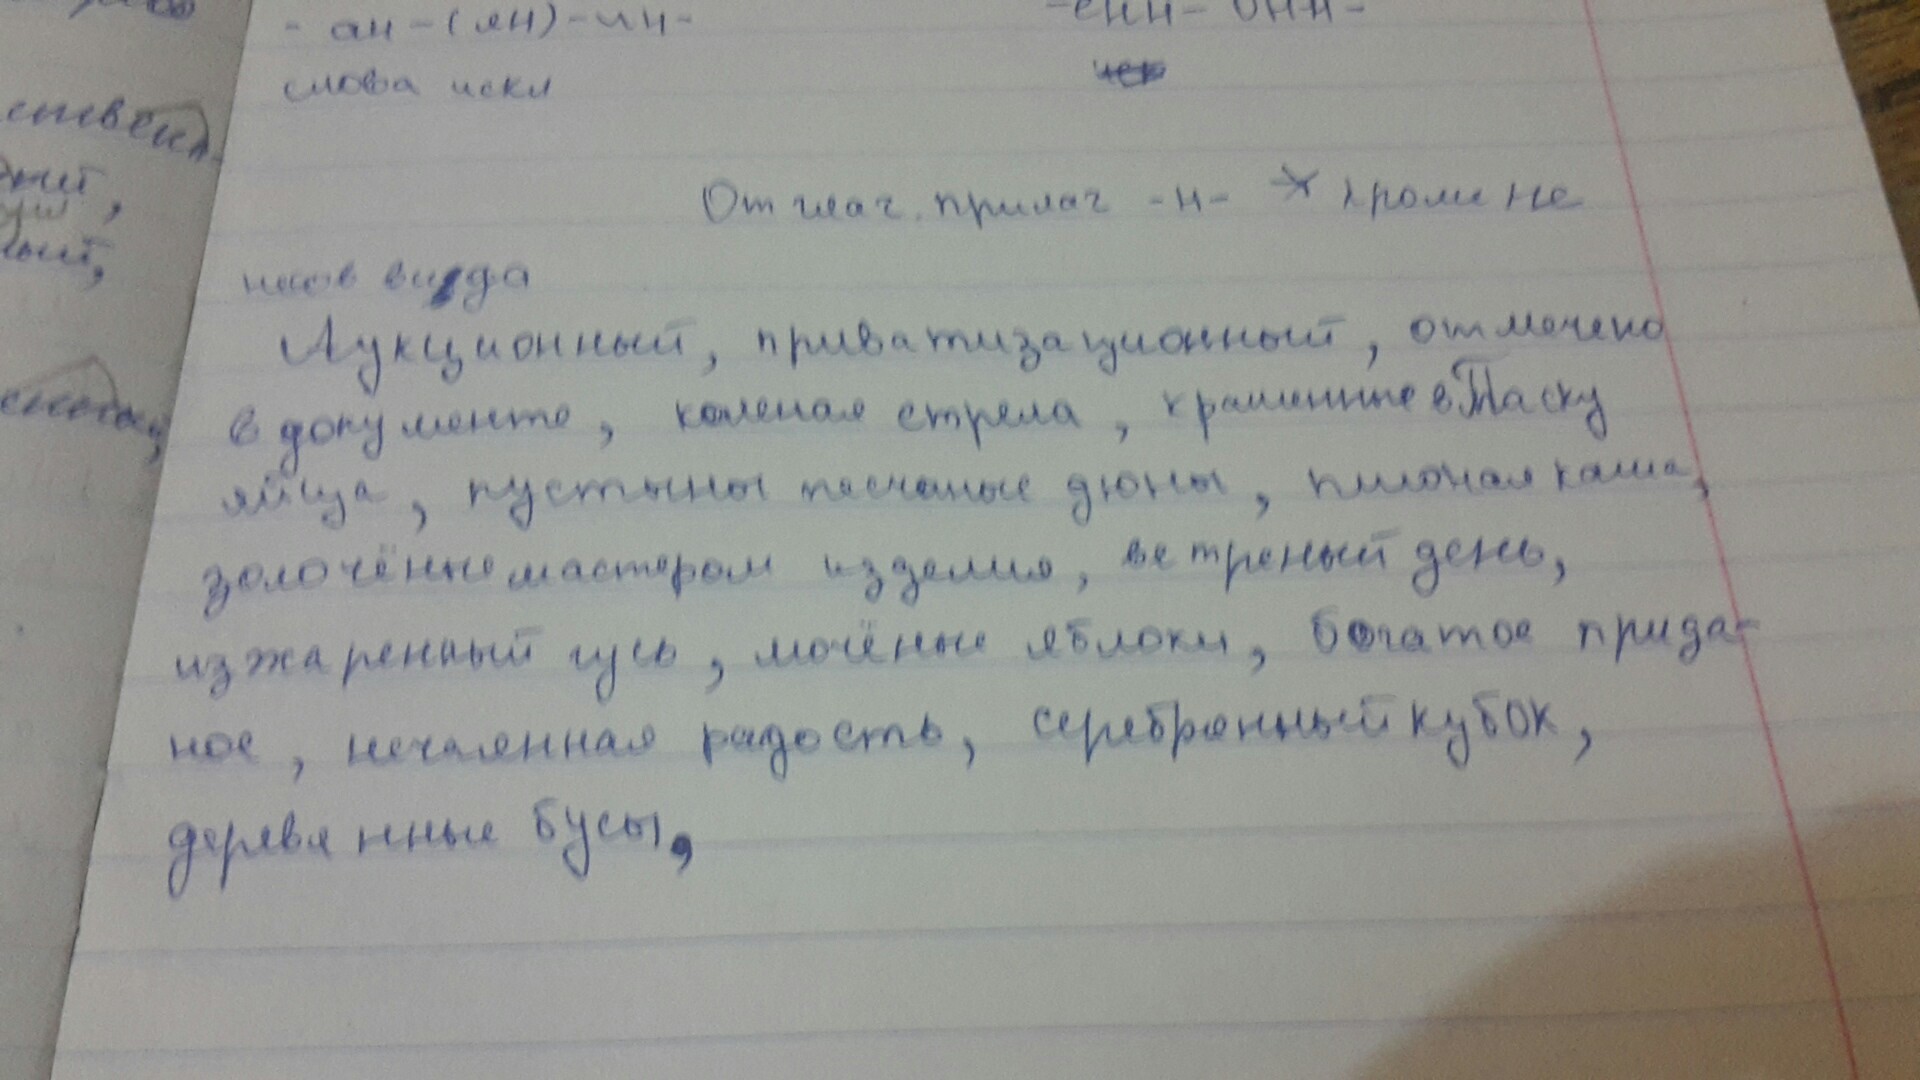 - ан -(ян) -ин- -енн- онн-
слова искл
Отглаг. прилаг -н- кроме не
несов вида
Аукционный, приватизационный, отмечено
в документе, каленая стрела, крашенные в Пасху
яйца, пустыны песчаные дюны, пшоная каша,
золочённые мастером изделия, ветреный день,
изжаренный гусь, мочёные яблоки, богатое прида-
ное, нечаянная радость, серебрянный кубок,
деревянные бусы,